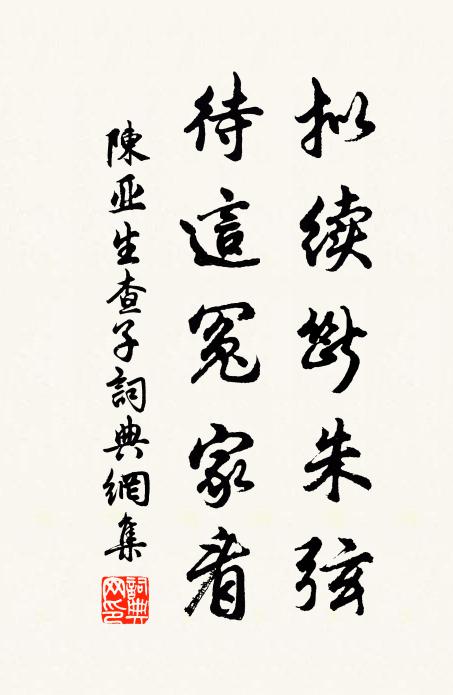 拟续断朱弦
待這冤家看
陳亚生查子詞典網集
詞典网印